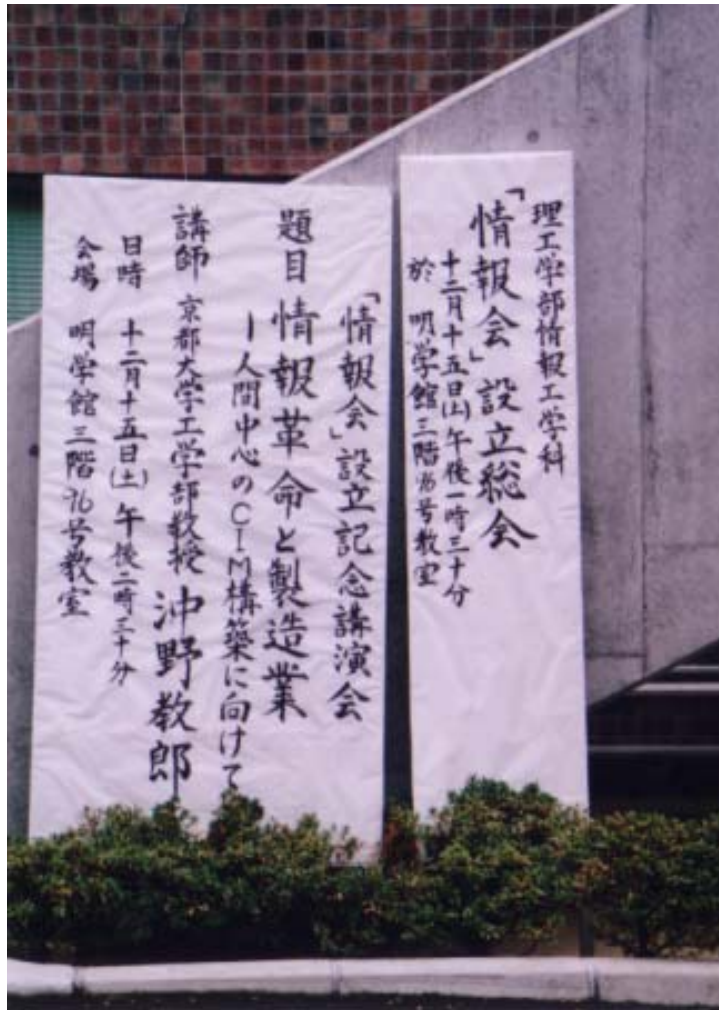 理工学部情報工学科
「情報会」設立総会
十二月十五日(土)午後一時三十分
於 明学館三階96号教室
「情報会」設立記念講演会
題目 情報革命と製造業
ー人間中心のCIM構築に向けて
講師 京都大学工学部教授 沖野教郎
日時 十二月十五日(土)午後二時三十分
会場 明学館三階96号教室